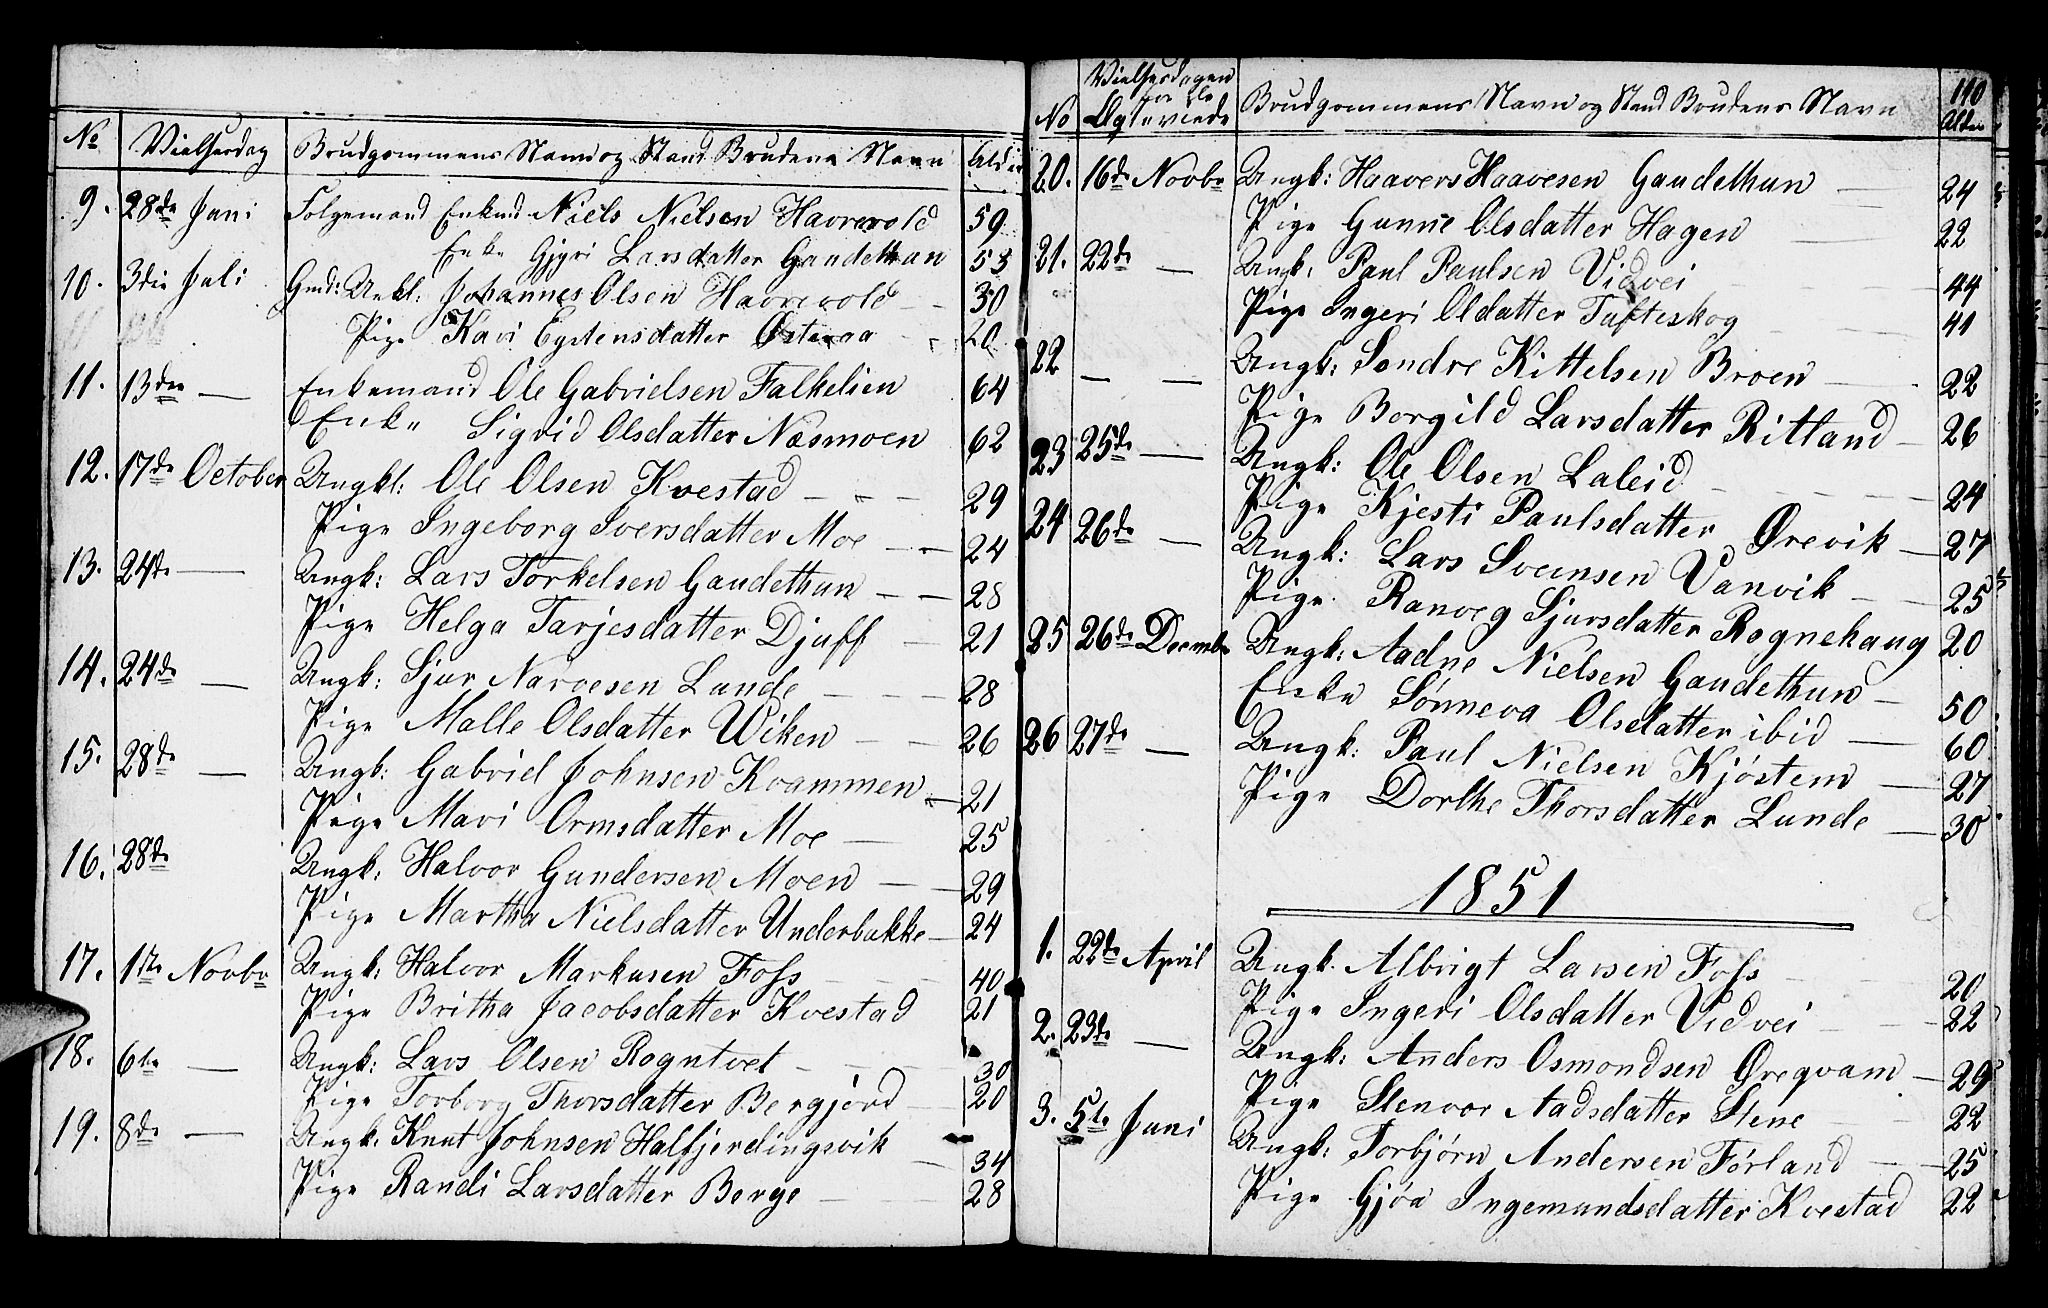 No Vielsesdag Brudgommens Navn og Stand Brudens Navn Alder
9. 28de Juni Folgemand Enkmd Niels Nielsen Havrevold 59
Enke Gjyri Larsdatter Gaudethun 53
10. 3die Juli Gmd: Unkl: Johannes Olsen Havrevold 30
Pige Kari Eystensdatter Østeraa 20
11. 13de — Enkemand Ole Gabrielsen Falkelien 64
Enke Sigrid Olsdatter Næsmoen 62
12. 17de October Ungkl: Ole Olsen Kvestad 29
Pige Ingeborg Iversdatter Moe 24
13. 24de — Ungk: Lars Torkelsen Gaudethun 28
Pige Helga Tarjesdatter Djuff 21
14. 24de — Ungk: Sjur Narvesen Lunde 28
Pige Malle Olsdatter Wiken 26
15. 28de — Ungk: Gabriel Johnsen Kvammen 21
Pige Mari Ormsdatter Moe 25
16. 28de Ungk: Halvor Gundersen Moen 29
Pige Martha Nielsdatter Underbakke 24
17. 1ste Novbr Ungk: Halvor Markusen Foss 40
Pige Britha Jacobsdatter Kvestad 21
18. 6te — Ungk: Lars Olsen Rogntvet 30
Pige Torborg Thorsdatter Bergjord 20
19. 8de — Ungk: Knut Johnsen Halfjerdingsvik 34
Pige Randi Larsdatter Berge 28
110
No Vielsesdagen for de Ægteviede Brudgommens Navn og Stand Brudens Navn Alder
20. 16de Novbr Ungk: Haavers Haavesen Gaudethun 24
Pige Gunne Olsdatter Hagen 22
21. 22de — Ungk: Paul Paulsen Vidvei 44
Pige Ingeri Oldatter Tufteskog 41
22 — — Ungk: Sondre Kittelsen Broen 22
Pige Borgild Larsdatter Ritland 26
23 25de — Ungk: Ole Olsen Laleid 24
Pige Kjesti Paulsdatter Ørevik 27
24 26de — Ungk: Lars Sveinsen Vanvik 25
Pige Ranveg Sjursdatter Rognehaug 20
25 26de Decembr Ungk: Aadne Nielsen Gaudethun 50
Enke Sønneva Olsdatter ibid 60
26 27de — Ungk: Paul Nielsen Kjøstem 27
Pige Dorthe Thorsdatter Lunde 30
1851
1. 22de April Ungk. Albrigt Larsen Foss 20
Pige Ingeri Olsdatter Vidvei 22
2. 23de — Ungk: Anders Osmondsen Øreqvam 29
Pige Stenvor Aadsdatter Stene 22
3. 5te Juni Ungk: Torbjørn Andersen Førland 25
Pige Gjøa Ingemundsdatter Kvestad 22